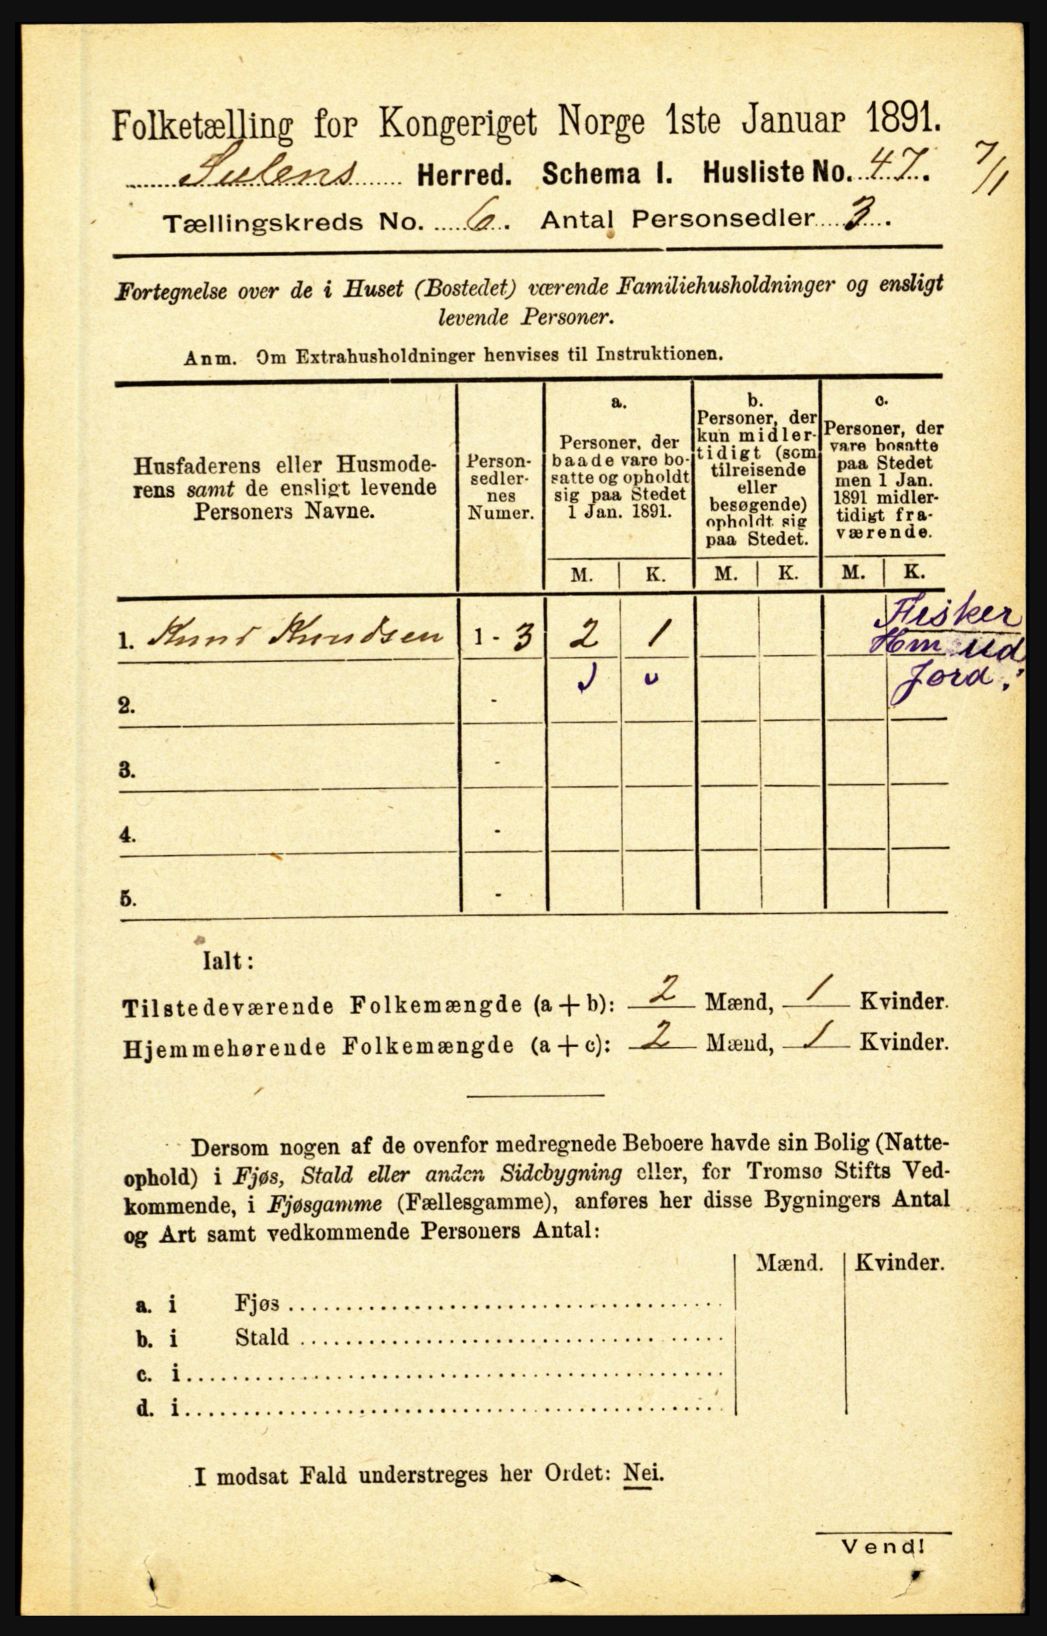 Folketælling for Kongeriget Norge 1ste Januar 1891.
Sulens Herred. Schema I. Husliste No. 47. 7/1
Tællingskreds No. 6. Antal Personsedler 3.
Fortegnelse over de i Huset (Bostedet) værende Familiehusholdninger og ensligt
levende Personer.
Anm. Om Extrahusholdninger henvises til Instruktionen.
Husfaderens eller Husmode-
rens samt de ensligt levende
Personers Navne.
Person-
sedler-
nes
Numer.
a.
Personer, der
baade vare bo-
satte og opholdt
sig paa Stedet
1 Jan. 1891.
b.
Personer, der
kun midler-
tidigt (som
tilreisende
eller
besøgende)
opholdt sig
paa Stedet.
c.
Personer, der
vare bosatte
paa Stedet
men 1 Jan.
1891 midler-
tidigt fra-
værende.
M. K. M. K. M. K.
1. Knud Knudsen 1 - 3 2 1 Fisker
Hm ud
Jord.
2. -
3. -
4. -
5. -
Ialt:
Tilstedeværende Folkemængde (a + b): 2 Mænd, 1 Kvinder.
Hjemmehørende Folkemængde (a + c): 2 Mænd, 1 Kvinder.
Dersom nogen af de ovenfor medregnede Beboere havde sin Bolig (Natte-
ophold) i Fjøs, Stald eller anden Sidebygning eller, for Tromsø Stifts Ved-
kommende, i Fjøsgamme (Fællesgamme), anføres her disse Bygningers Antal
og Art samt vedkommende Personers Antal:
Mænd. Kvinder.
a. i Fjøs
b. i Stald
c. i
d. i
I modsat Fald understreges her Ordet: Nei.
Vend!